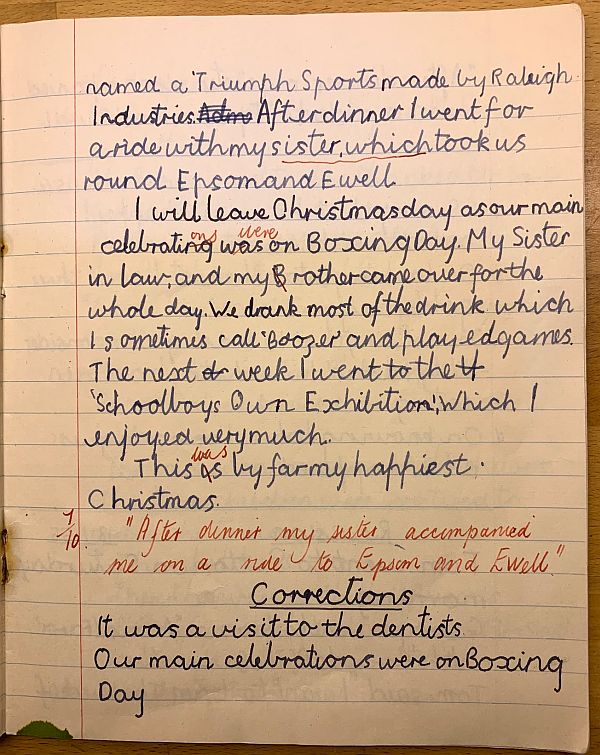 named a 'Triumph Sports made by Raleigh
Industries. Adms After dinner I went for
a ride with my sister, which took us
round Epsom and Ewell
I will leave Christmas day as our main
ons were
celebrating was on Boxing Day. My Sister
in law, and my Brother came over for the
whole day. We drank most of the drink which
I sometimes call 'Boozer' and played games.
The next dr week I went to the H
'Schoolboys Own Exhibition', which I
enjoyed very much.
was
This is by far my happiest
Christmas.
7/10 "After dinner my sister accompanied
me on a ride to Epsom and Ewell"
Corrections
It was a visit to the dentists
Our main celebrations were on Boxing
Day